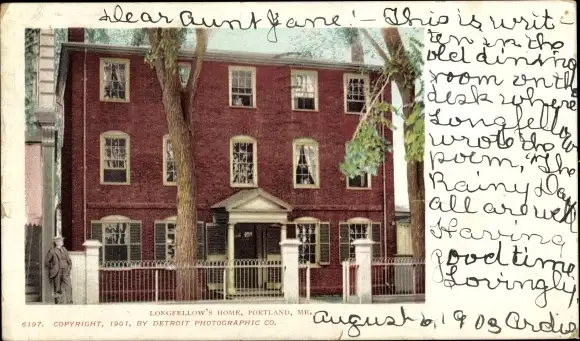 Dear Aunt Jane:- This is writ-
ten in the
old dining
room on the
desk where
Longfellow
wrote the
poem, "The
Rainy Day
all are well
Having
good time
Lovingly
LONGFELLOW'S HOME, PORTLAND, ME.
August 6, 1903 Ardie
6197. COPYRIGHT, 1901, BY DETROIT PHOTOGRAPHIC CO.